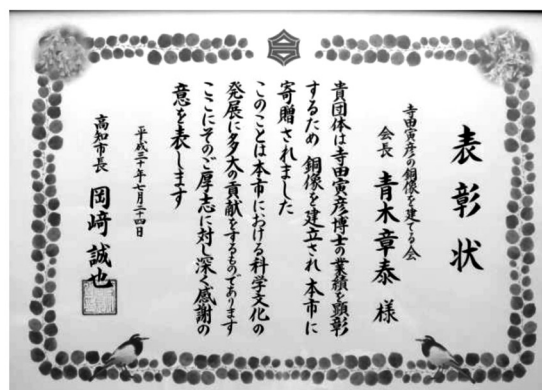 表彰状
寺田寅彦の銅像を建てる会
会長 青木章泰 様
貴団体は寺田寅彦博士の業績を顕彰
するため 銅像を建立され 本市に
寄贈されました
このことは本市における科学文化の
発展に多大の貢献をするものであります
ここにそのご厚志に対し深く感謝の
意を表します
平成三十年七月二十四日
高知市長 岡﨑誠也